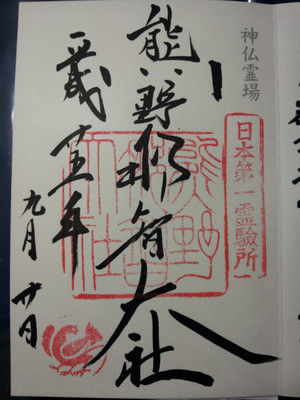 神仏霊場
日本第一霊験所
熊野那智大社
熊野
那智
大社
平成廿五年
九月廿日